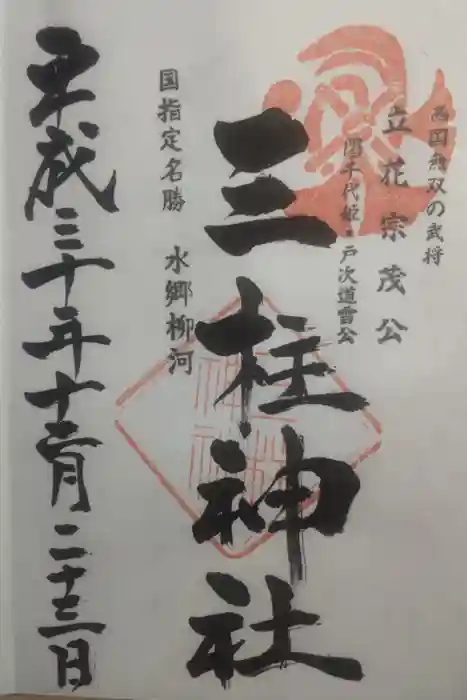 西国無双の武将
立花宗茂公
誾千代姫・戸次道雪公
三柱神社
国指定名勝 水郷柳河
平成三十年十二月二十三日